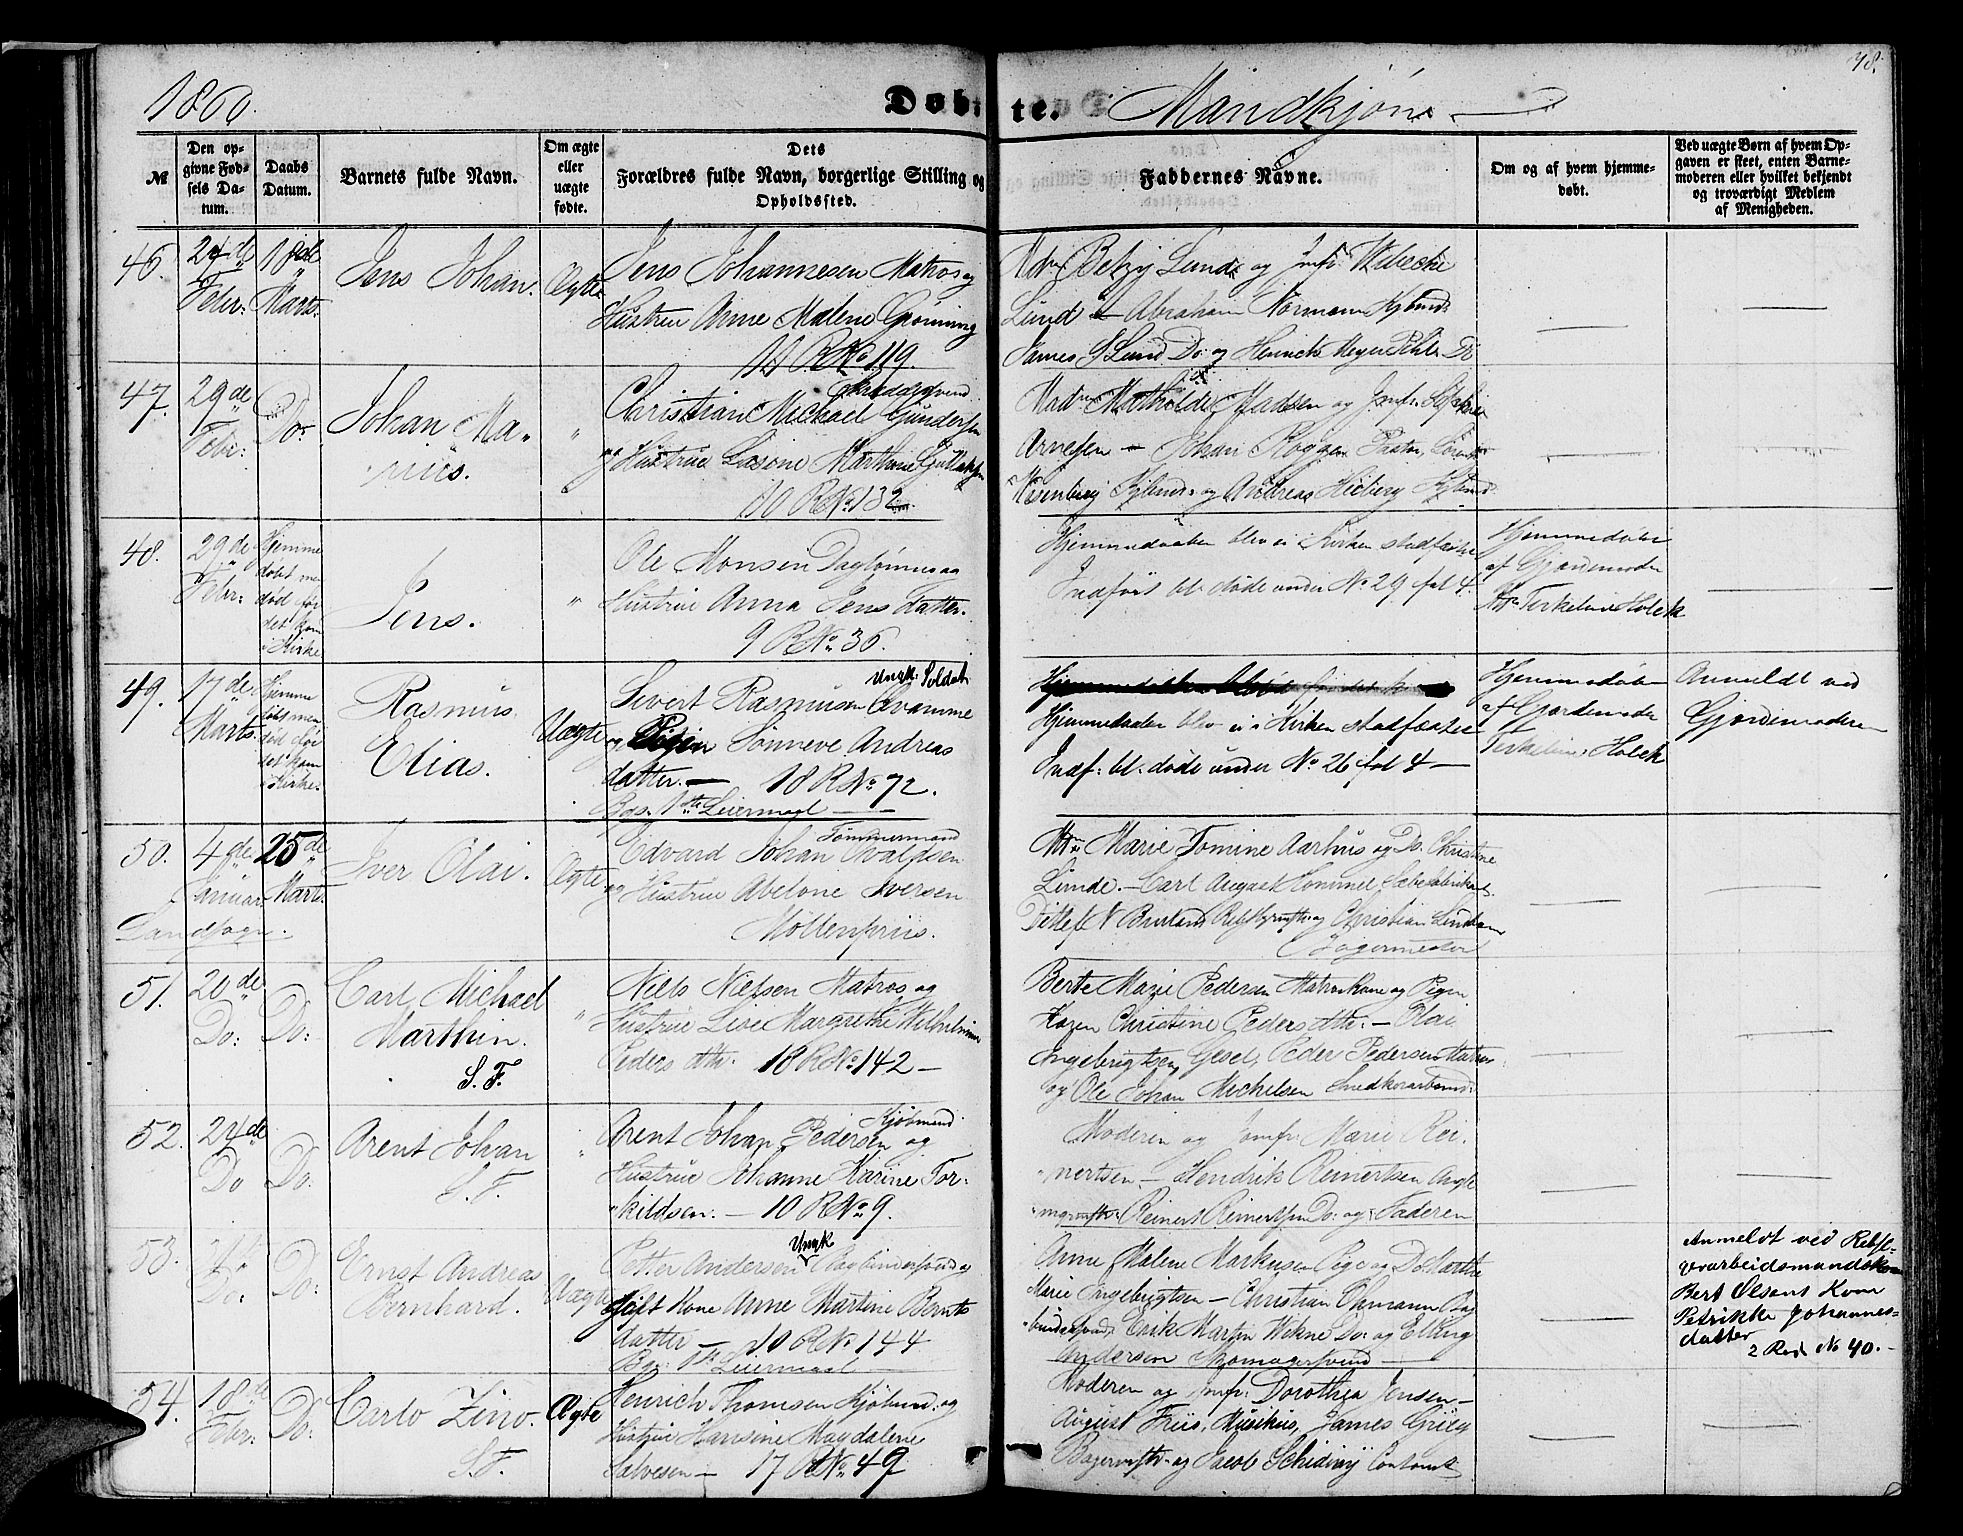 1860.
Døbte.
Mandkjøn
48.
№
Den op-
givne Fød-
sels Da-
tum.
Daabs
Datum.
Barnets fulde Navn.
Om ægte
eller
uægte
fødte.
Dets
Forældres fulde Navn, borgerlige Stilling og
Opholdssted.
Faddernes Navne.
Om og af hvem hjemme-
døbt.
Ved uægte Børn af hvem Op-
gaven er skeet, enten Barne-
moderen eller hvilket bekjendt
og troværdigt Medlem
af Menigheden.
46.
24de
Febr:
18de
Marts
Jens Johan.
Ægte
Jens Johannesen Matros og
Hustrue Anne Malene Grønning
R No 119.
Betzy Lund og Jmfr. Wibecke
Lund Abraham Normann Kjøbmd.
James Lund Do. og Henrich Meyer
47.
29de
Febr:
Do.
Johan Ma-
rius.
"
Christian Michael Gundersen
og Hustrue Marthine
10 R No 132
Mathilde Madsen og Jmfr.
Arnesen Johan
og Andreas Heiberg
48.
29de
Febr:
Hjemme
døbt men
død før
det kom
i Kirke
Jens.
"
Ole Monsen Daglønner og
Hustrue Anna Jens datter.
9 R No. 36.
Hjemmedaaben blev ei i Kirken stadfæstet
Indført bl. døde under No 29 fol 4.
Hjemmedøbt
af Gjordemoder
Terkeline Holck
49.
17de
Marts.
Hjemme
døbt men
død før
det kom
i Kirke.
Rasmus
Elias.
Uægte
Ungk. Soldat
Sivert Rasmusen Kvamme
og Pigen Sønneve Andreas
datter. — 18 R No 72.
Bgs. 1ste Leiermaal —
Hjemmedaaben blev ei i Kirken stadfæstet
Indf: bl. døde under No 26 fol 4 —
Hjemmedøbt
af Gjordemoder
Terkeline Holck
Anmeldt ved
Gjordemoderen
50.
4de
Januar
Landsogn.
25de
Marts
Iver Olai.
Ægte
Tømmermand
Edvard Johan
og Hustrue Abelone Iversen
Møllenpriis.
Marie Tomine Aarhus og Do. Christine
Lunde. — Carl August Hommel, Sæbefabrikant
Ditlef N og Christian
Jægermester
51.
20de
Do:
Do:
Carl Michael
Marthin.
S. F.
"
Niels Nielsen Matros og
Hustrue Lise Margrethe Wilhelmine
Peders dtr. 18 R No. 142 —
Berte Marie Pedersen Matroskone og Pigen
Karen Christine Peders dtr. — Olai
Ingebrigtsen Gesel, Peder Pedersen Matros
og Ole Johan Michelsen Snedkerarbeidsmd.
52.
24de
Do
Do.
Arent Johan
S. F.
"
Kjøbmand
Arent Johan Pedersen og
Hustrue Johanne Karine Tor-
kildsen. — 10 R No. 9.
Moderen og Jomfr. Marie Rei-
nertsen. — Hendrik Reinertsen
Reinert Reinertsen Do: og Faderen
53.
Do:
Do:
Ernst Andreas
Bernhard.
Uægte
Ungk
Petter Andersen Bogbindersvend og
gift Kone Anne Martine Bernts
datter — 10 R No 144
Bgs: 1ste Leiermaal —
Anne Malene Markusen Pige og Do. Marthe
Marie Ingebrigtsen — Christian Ohmann Bog
bindersvend, Erik Martin Do: og Elling
Andersen Skomagersvend —
Anmeldt ved Rebsl-
erarbeidsmandskone
Bert Olsens Kone
Petrikke Johannes-
datter
2 Rod No 40. —
54.
18de
Febr:
Do:
Carlo Zino.
S. F.
Ægte
Henrich Thomsen Kjøbmd. og
Hustrue Hansine Magdalene
Salvesen — 17 R No 49
Moderen og Jmfr: Dorothea Jensen —
August Friis, Musikus, James Grieg
Bagermstr. og Jacob Contorist